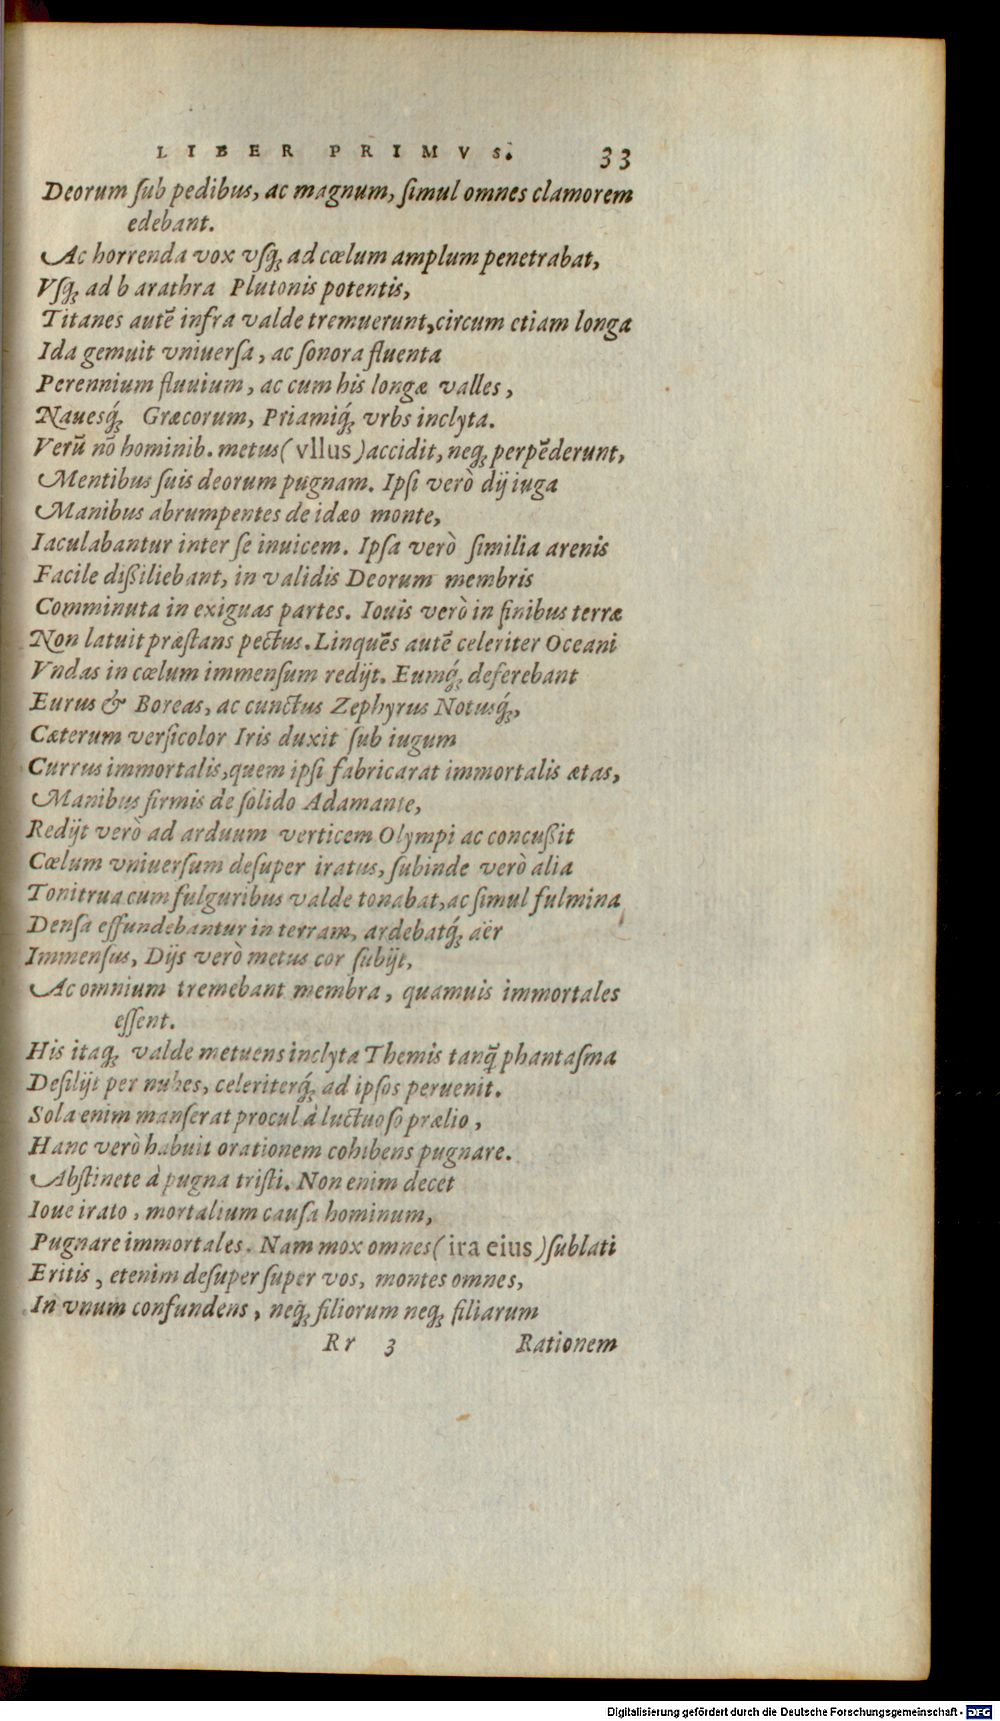 LIBER PRIMVS. 33
Deorum ſub pedibus, ac magnum, ſimul omnes clamorem
edebant.
Ac horrenda vox vſq́; ad cœlum amplum penetrabat,
Vſq́; ad b arathra Plutonis potentis,
Titanes autẽ infra valde tremuerunt, circum etiam longa
Ida gemuit vniuerſa, ac ſonora fluenta
Perennium fluuium, ac cum his longæ valles,
Nauesq́; Græcorum, Priamiq́; vrbs inclyta.
Verũ nõ hominib. metus (vllus) accidit, neq; perpẽderunt,
Mentibus ſuis deorum pugnam. Ipſi verò dij iuga
Manibus abrumpentes de idæo monte,
Iaculabantur inter ſe inuicem. Ipſa verò ſimilia arenis
Facile dißiliebant, in validis Deorum membris
Comminuta in exiguas partes. Iouis verò in finibus terræ
Non latuit præſtans pectus. Linquẽs autẽ celeriter Oceani
Vndas in cœlum immenſum redijt. Eumq́; deferebant
Eurus & Boreas, ac cunctus Zephyrus Notusq́;,
Cæterum verſicolor Iris duxit ſub iugum
Currus immortalis, quem ipſi fabricarat immortalis ætas,
Manibus firmis de ſolido Adamante,
Redijt verò ad arduum verticem Olympi ac concußit
Cœlum vniuerſum deſuper iratus, ſubinde verò alia
Tonitrua cum fulguribus valde tonabat, ac ſimul fulmina
Denſa effundebantur in terram, ardebatq́; aër
Immenſus, Dijs verò metus cor ſubijt,
Ac omnium tremebant membra, quamuis immortales
eſſent.
His itaq; valde metuens inclyta Themis tanq̃ phantaſma
Deſilijt per nubes, celeriterq́; ad ipſos peruenit.
Sola enim manſerat procul à luctuoſo prælio,
Hanc verò habuit orationem cohibens pugnare.
Abſtinete à pugna triſti. Non enim decet
Ioue irato, mortalium cauſa hominum,
Pugnare immortales. Nam mox omnes (ira eius) ſublati
Eritis, etenim deſuper ſuper vos, montes omnes,
In vnum confundens, neq; filiorum neq; filiarum
Rr 3 Rationem
Digitalisierung gefördert durch die Deutsche Forschungsgemeinschaft - DFG